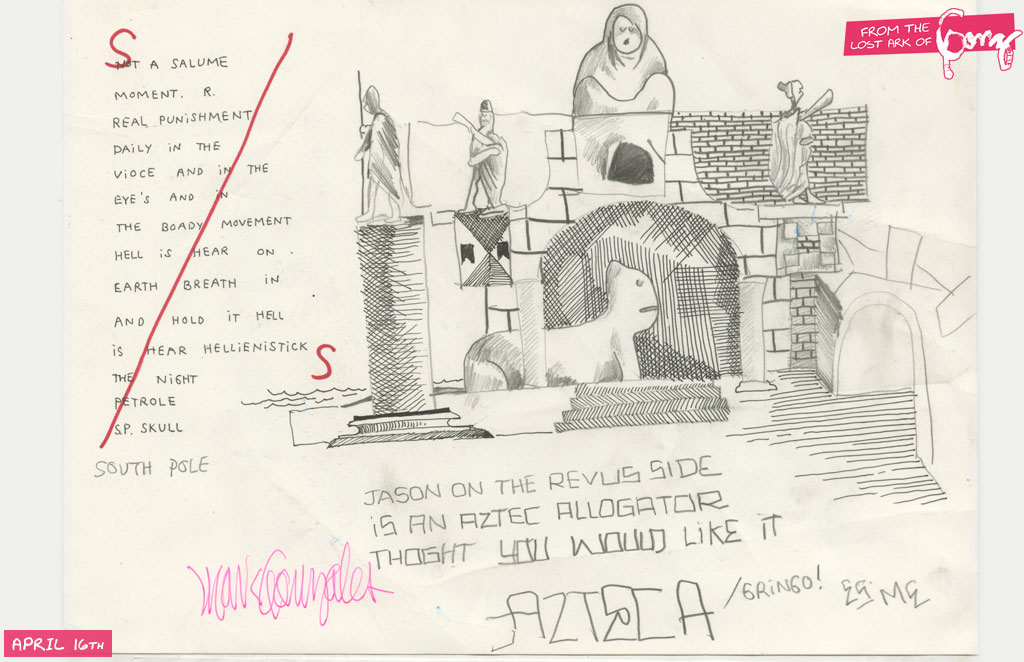 FROM THE
LOST ARK OF Gonz
S
NOT A SALUME
MOMENT. R.
REAL PUNiSHMENT
DAILY IN THE
VIOCE AND IN THE
EYE'S AND IN
THE BOADY MOVEMENT
HELL iS HEAR ON
EARTH BREATH IN
AND HOLD iT HELL
iS HEAR HELLIENISTICK S
THE NiGHT
PETROLE
S.P. SKULL
SOUTH POLE
JASON ON THE REVUS SIDE
iS AN AZTEC ALLOGATOR
THOGHT YOU WOULD LiKE iT
Mark Gonzales
AZTECA /GRiNGO!
APRIL 16TH